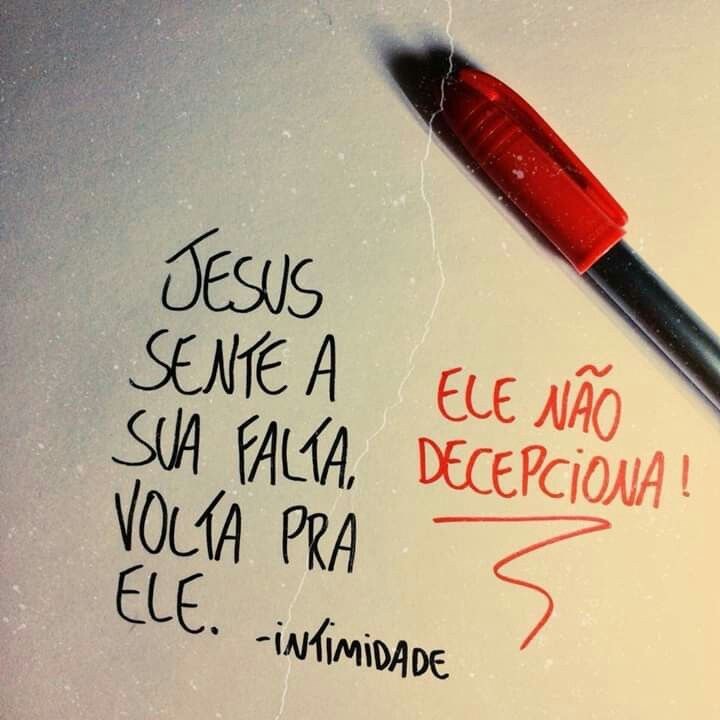 JESUS
SENTE A
SUA FALTA,
VOLTA PRA
ELE.
-INTIMIDADE
ELE NÃO
DECEPCIONA!